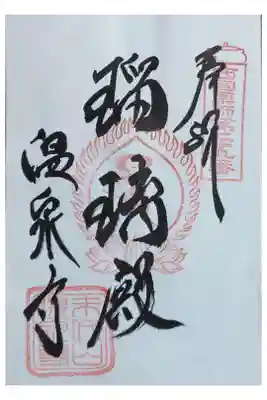 奉拝
瑠璃殿
温泉寺